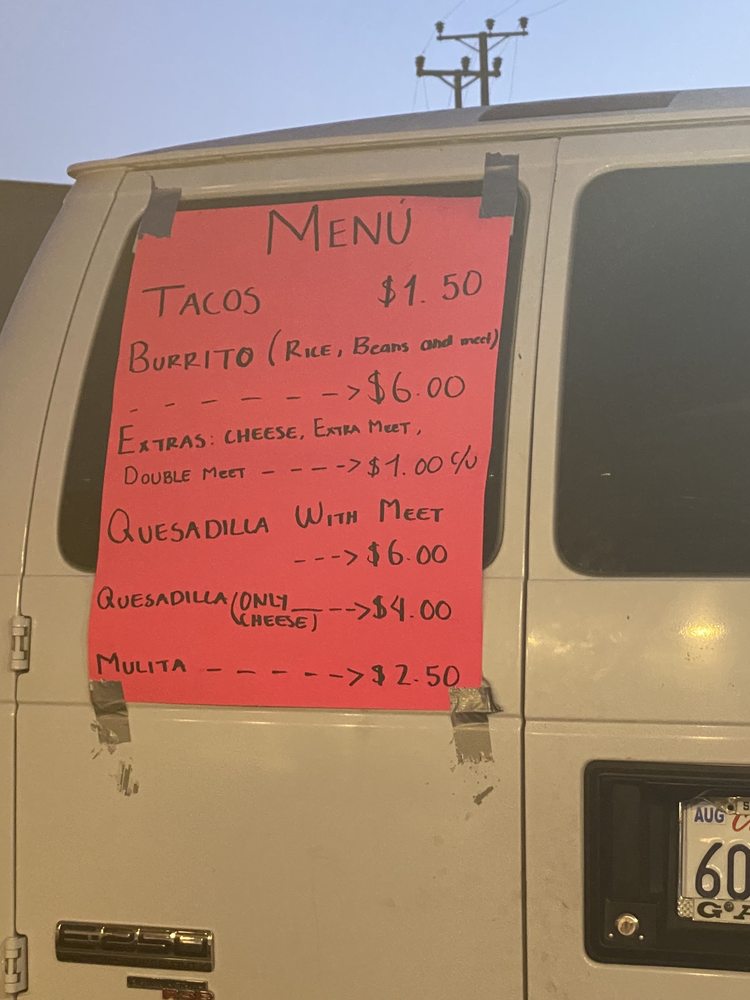 MENÚ
TACOS $1.50
BURRITO (RICE, Beans and meet)
- - - - - - -> $6.00
EXTRAS: CHEESE, EXTRA MEET,
DOUBLE MEET - - - -> $1.00 c/u
QUESADILLA WITH MEET
- - -> $6.00
QUESADILLA (ONLY CHEESE) - - -> $4.00
MULITA - - - - - -> $2.50
AUG
60
GA
E-250